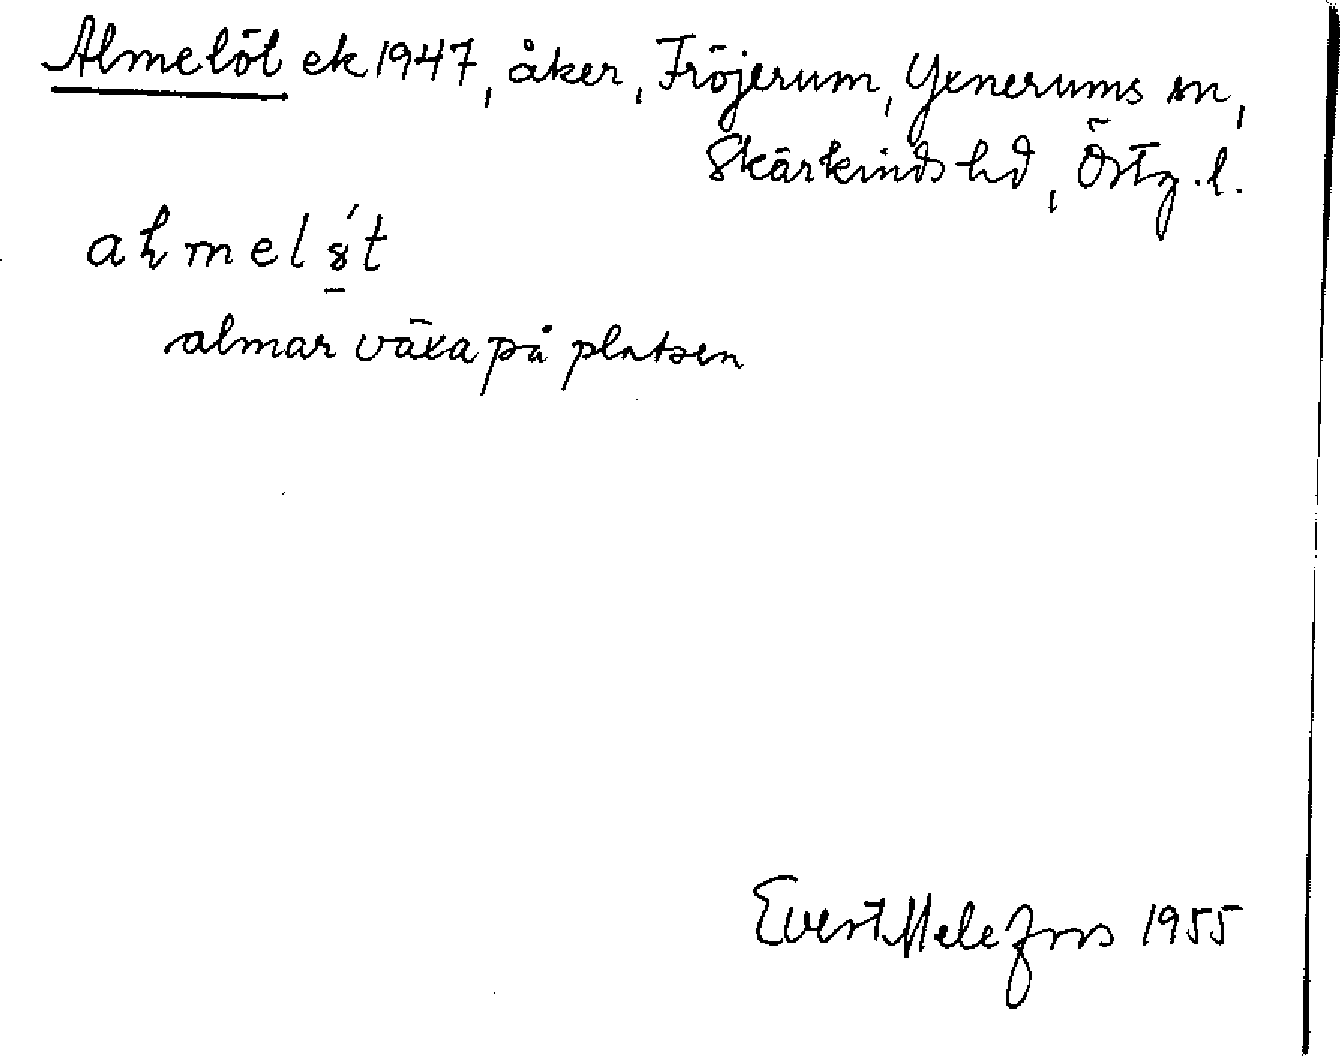 Almelöt ek 1947, åker, Fröjerum, Yxnerums sn,
Skärkinds hd, Östg.l.
almar växa på platsen
Evert Melefors 1955